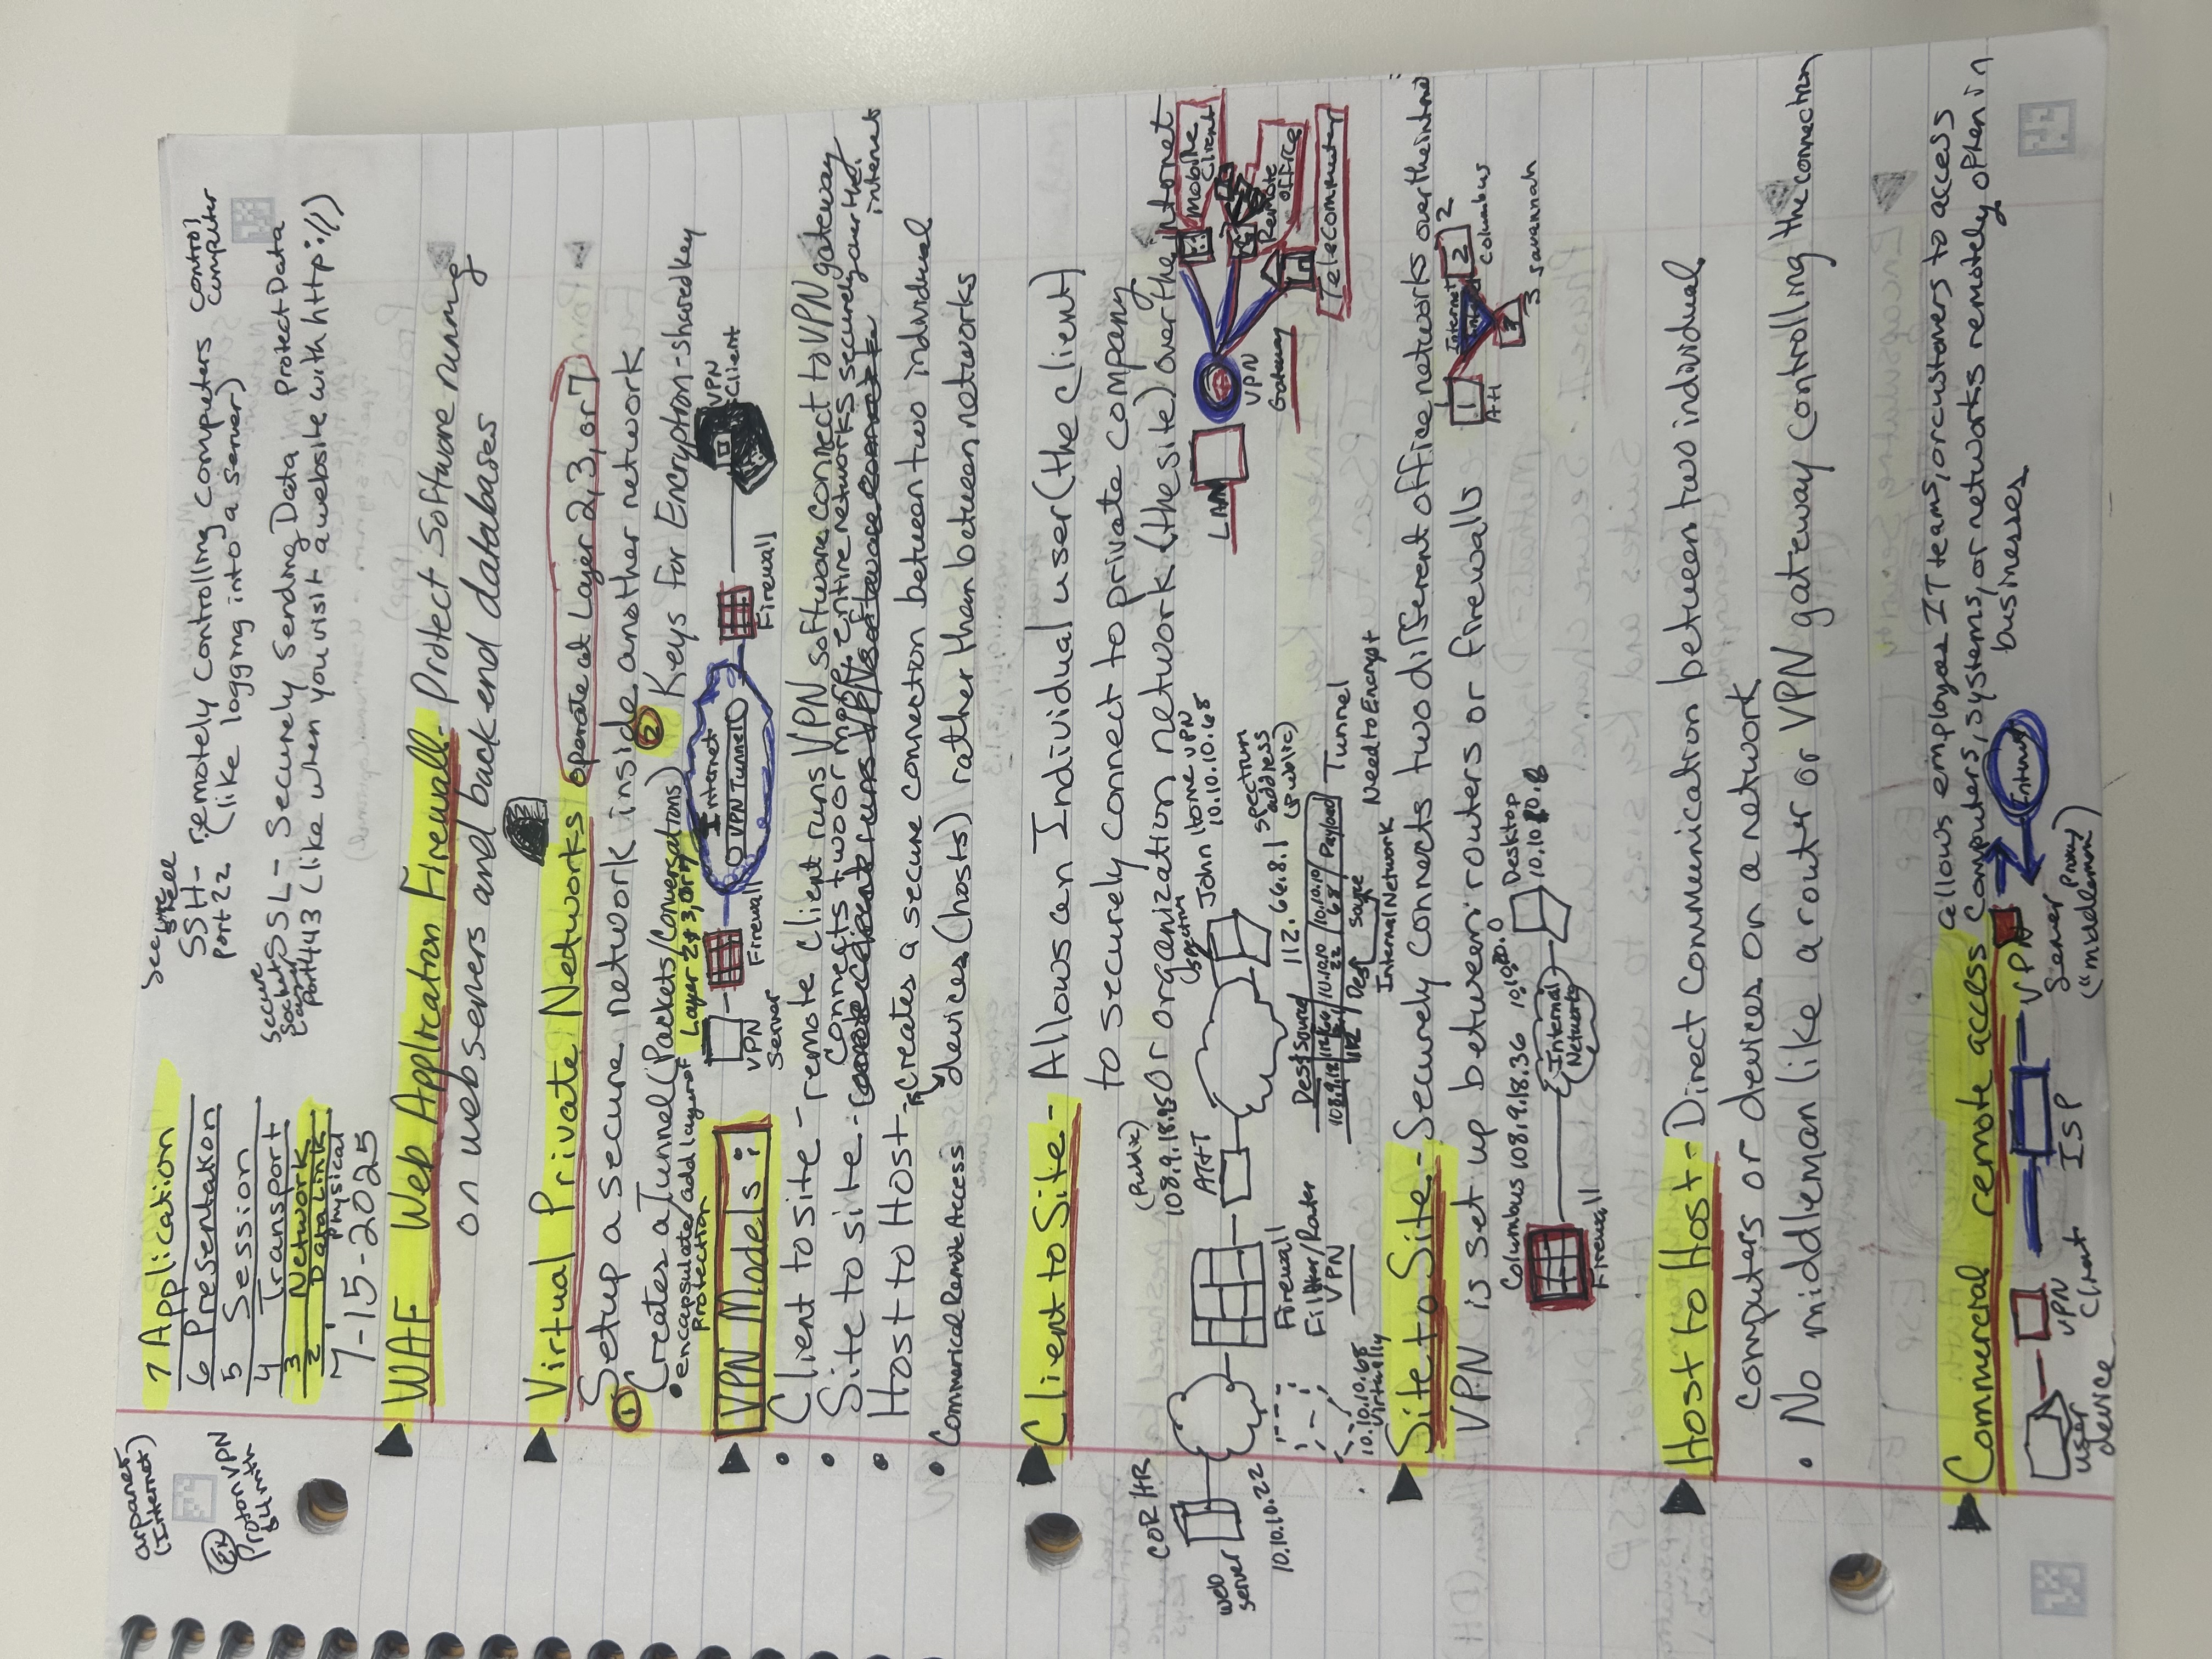 arpanet
(Internet)
Ex
Proton VPN
$4 mnth
7 Application
6 Presentation
5 Session
4 Transport
3 Network
2 Data Link
1 Physical
7-15-2025
Secure
Shell
SSH- remotely controlling computers
Port 22 (like logging into a server)
control
computer
Secure
Socket
Layer
SSL- Securely Sending Data
Protect Data
Port 443 (like when you visit a website with http://)
WAF Web Application Firewall- Protect Software running
on webservers and back end databases
Virtual Private Networks operate at Layer 2, 3, or 7
Setup a secure network inside another network
1 Creates a Tunnel (Packets/Conversations)
2 Keys for Encryption-shared key
• encapsulate add layer of Layer 2, 3, or 7
Protection
VPN Models:
VPN
Server
Firewall
Internet
VPN Tunnel
Firewall
VPN
Client
• Client to site - remote client runs VPN software connect to VPN gateway
• Site to site - connects two or more entire networks securely over the
internet
remote client runs VPN software connect to
• Host to Host - creates a secure connection between two individual
devices (hosts) rather than between networks
• Commerical Remote Access
Client to Site - Allows an Individual user (the client)
to securely connect to private company
or organization network (the site) over the internet
COR HR
web
server
10.10.10.22
Firewall
Filter/Router
VPN
(Public)
108.9.18.95
AT+T
Spectrum
John Home VPN
10.10.10.68
112.66.8.1
spectrum
address
(public)
10.10.10.68
virtually
Dest Source
108.9.18
10.10.10
22
10.10.10
68
Payload
Tunnel
112
Dest Source
Internal Network
Need to Encrypt
LAN
VPN
Gateway
Mobile
Client
Remote
office
Telecommuter
Site to Site - Securely connects two different office networks over the internet
VPN is set up between routers or firewalls
1
1
Internet
2
2
Columbus
3
3 Savannah
Columbus 108.9.18.36
Firewall
Internal
Network
Desktop
Host to Host - Direct communication between two individual
computers or devices on a network
• No middleman like a router or VPN gateway controlling the connection
Commercial remote access
allows employees IT teams, or customers to access
computers, systems, or networks remotely often in
businesses
user
device
VPN
Client
ISP
VPN
Server
Proxy
("middleman")
Internet